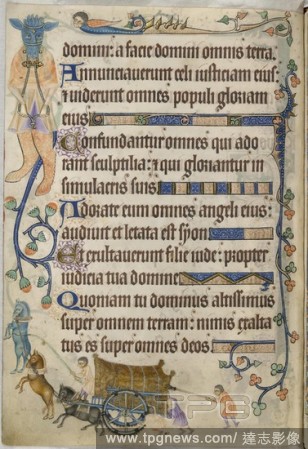 domini: a facie domini omnis terra.
Annunciauerunt celi iusticiam eius:
⁊ uiderunt omnes populi gloriam
eius
Confundantur omnes qui ado
rant sculptilia: ⁊ qui gloriantur in
simulacris suis
Adorate eum omnes angeli eius:
audiuit et letata est syon
Et exultauerunt filie iude: propter
iudicia tua domine
Quoniam tu dominus altissimus
super omnem terram: nimis exalta
tus es super omnes deos.
TPG
www.tpgnews.com/ 達志影像